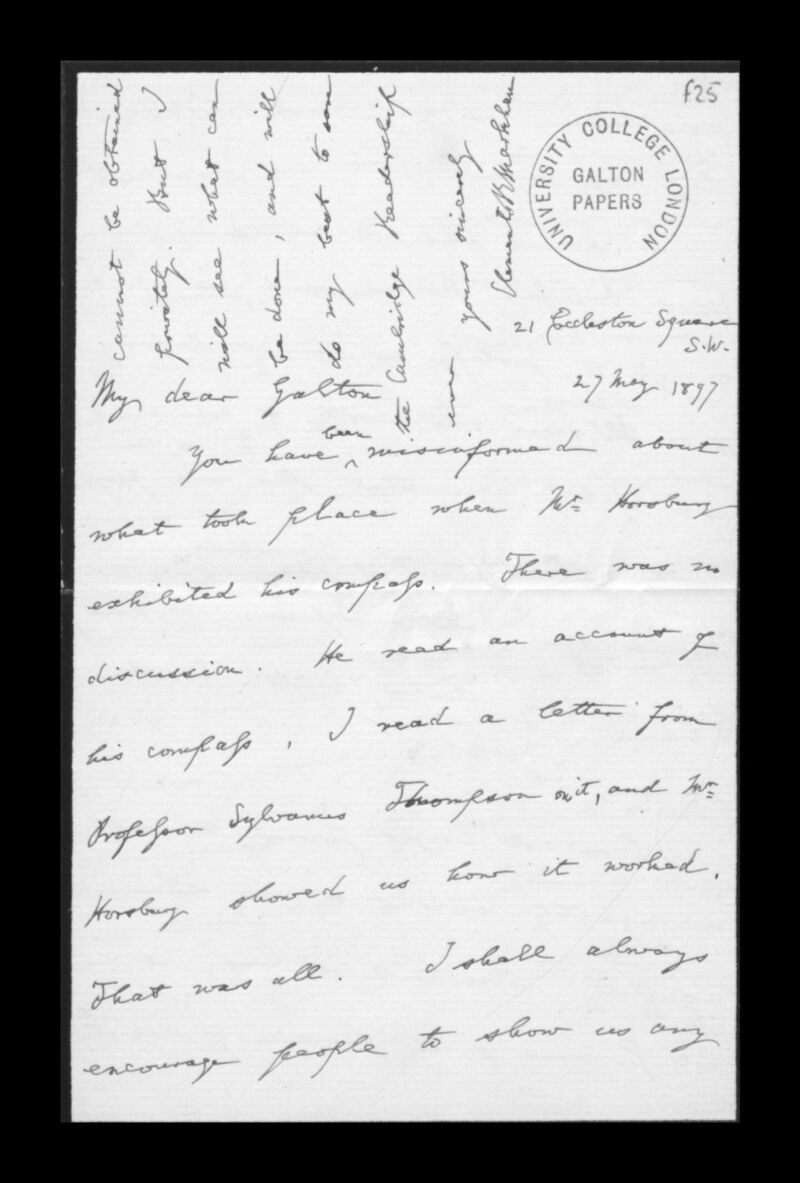 f25
UNIVERSITY COLLEGE LONDON
GALTON
PAPERS
21 Eccleston Square
S.W.
27 May 1897
My dear Galton
You have been misinformed about
what took place when Mr Horsburgh
exhibited his compass. There was no
discussion. He read an account of
his compass, I read a letter from
Professor Sylvanus Thompson on it, and Mr
Horsburgh showed us how it worked.
That was all. I shall always
encourage people to show us any
cannot be obtained
privately. But I
will see what can
be done, and will
do my best to
the Cambridge Readership
ever yours sincerely
Clements R Markham